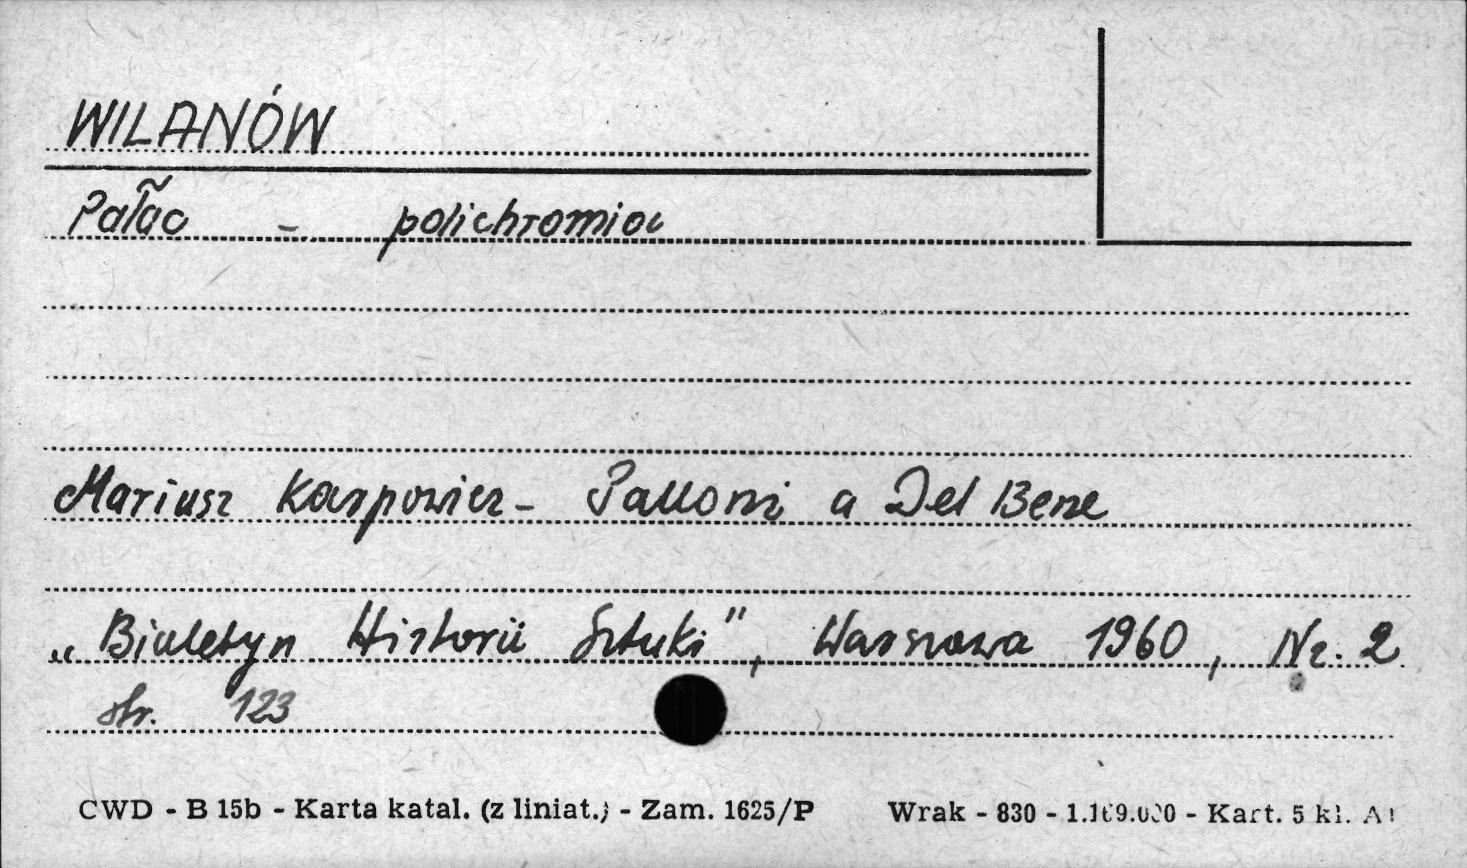 WILANÓW
Pałac - polichromia
Mariusz Karpowicz - Palloni a Del Bene
„Biuletyn Historii Sztuki”, Warszawa 1960, Nr. 2
str. 123
CWD - B 15b - Karta katal. (z liniat.) - Zam. 1625/P Wrak - 830 - - Kart. 5 kl.